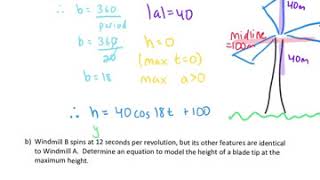 ∴ b = 360
period
|a| = 40
b = 360
20
h = 0
(max t=0)
b = 18
max a>0
∴ h = 40 cos 18t + 100
y
40m
midline
=100m
40m
b) Windmill B spins at 12 seconds per revolution, but its other features are identical
to Windmill A. Determine an equation to model the height of a blade tip at the
maximum height.